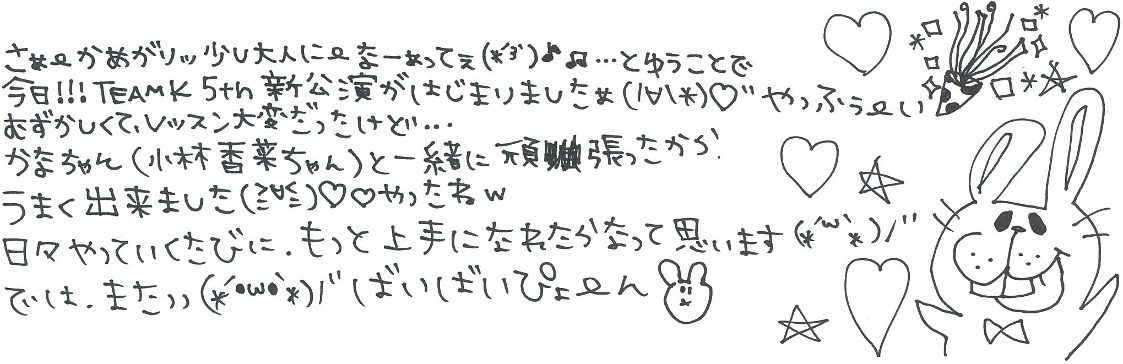 さぁ〜かめがリッ少し大人に〜なーぁってぇ(*´3`)♪♫…とゆうことで
今日!!!TEAMK 5th 新公演がはじまりましたぁ(!∀\*)♡゛やっふぅ〜い
むずかしくて、レッスン大変だったけど…
かなちゃん(小林香菜ちゃん)と一緒に頑張ったから!
うまく出来ました(≧∀≦)♡♡やったねw
日々やっていくたびに、もっと上手になれたらなって思います(*´ω`*)/゛
では、また››(*´•ω•`*)/゛ばいばいぴょ〜ん